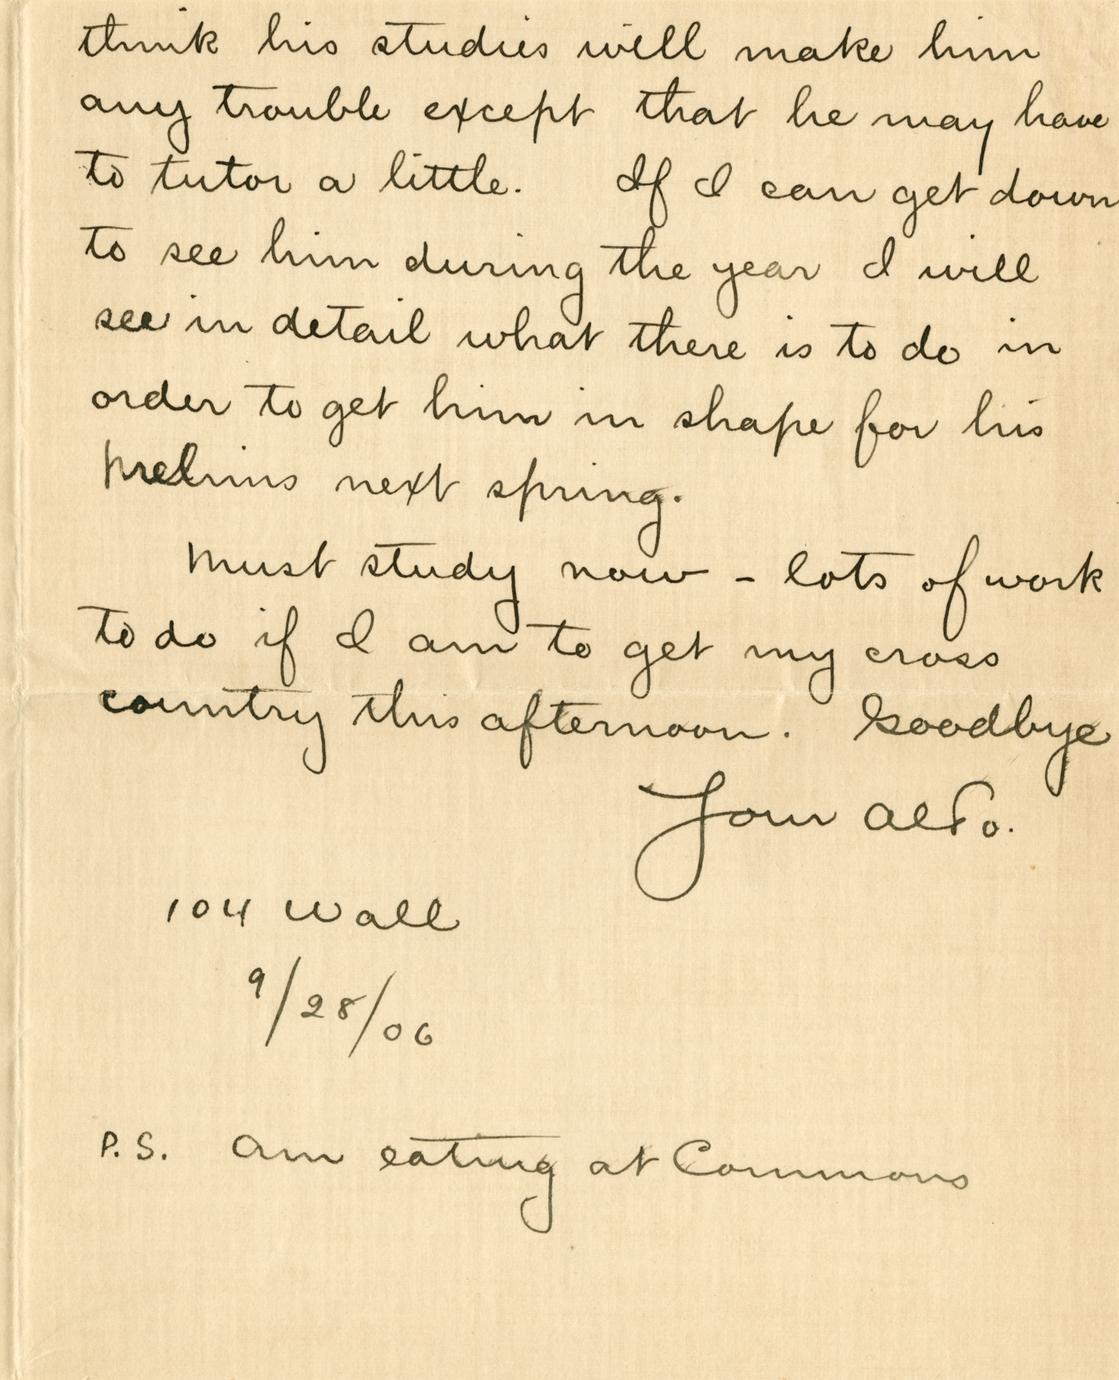 think his studies will make him
any trouble except that he may have
to tutor a little. If I can get down
to see him during the year I will
see in detail what there is to do in
order to get him in shape for his
prelims next spring.
Must study now - lots of work
to do if I am to get my cross
country this afternoon. Goodbye
Your Aldo.
104 Wall
9/28/06
P.S. Am eating at Commons